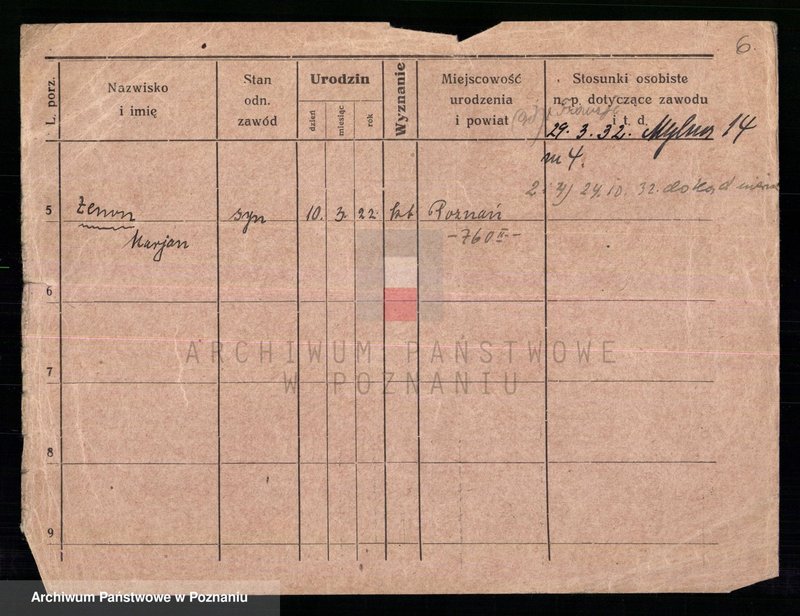 6.
L. porz.
Nazwisko
i imię
Stan
odn.
zawód
Urodzin
dzień
miesiąc
rok
Wyznanie
Miejscowość
urodzenia
i powiat
Stosunki osobiste
n. p. dotyczące zawodu
i t. d.
29. 3. 32. Mylna 14
m 4.
24. 10. 32.
5
Zenon
syn
10.
3.
22.
kat
Poznań
Marjan
-760 II-
6
7
8
9
ARCHIWUM PAŃSTWOWE
W POZNANIU
Archiwum Państwowe w Poznaniu